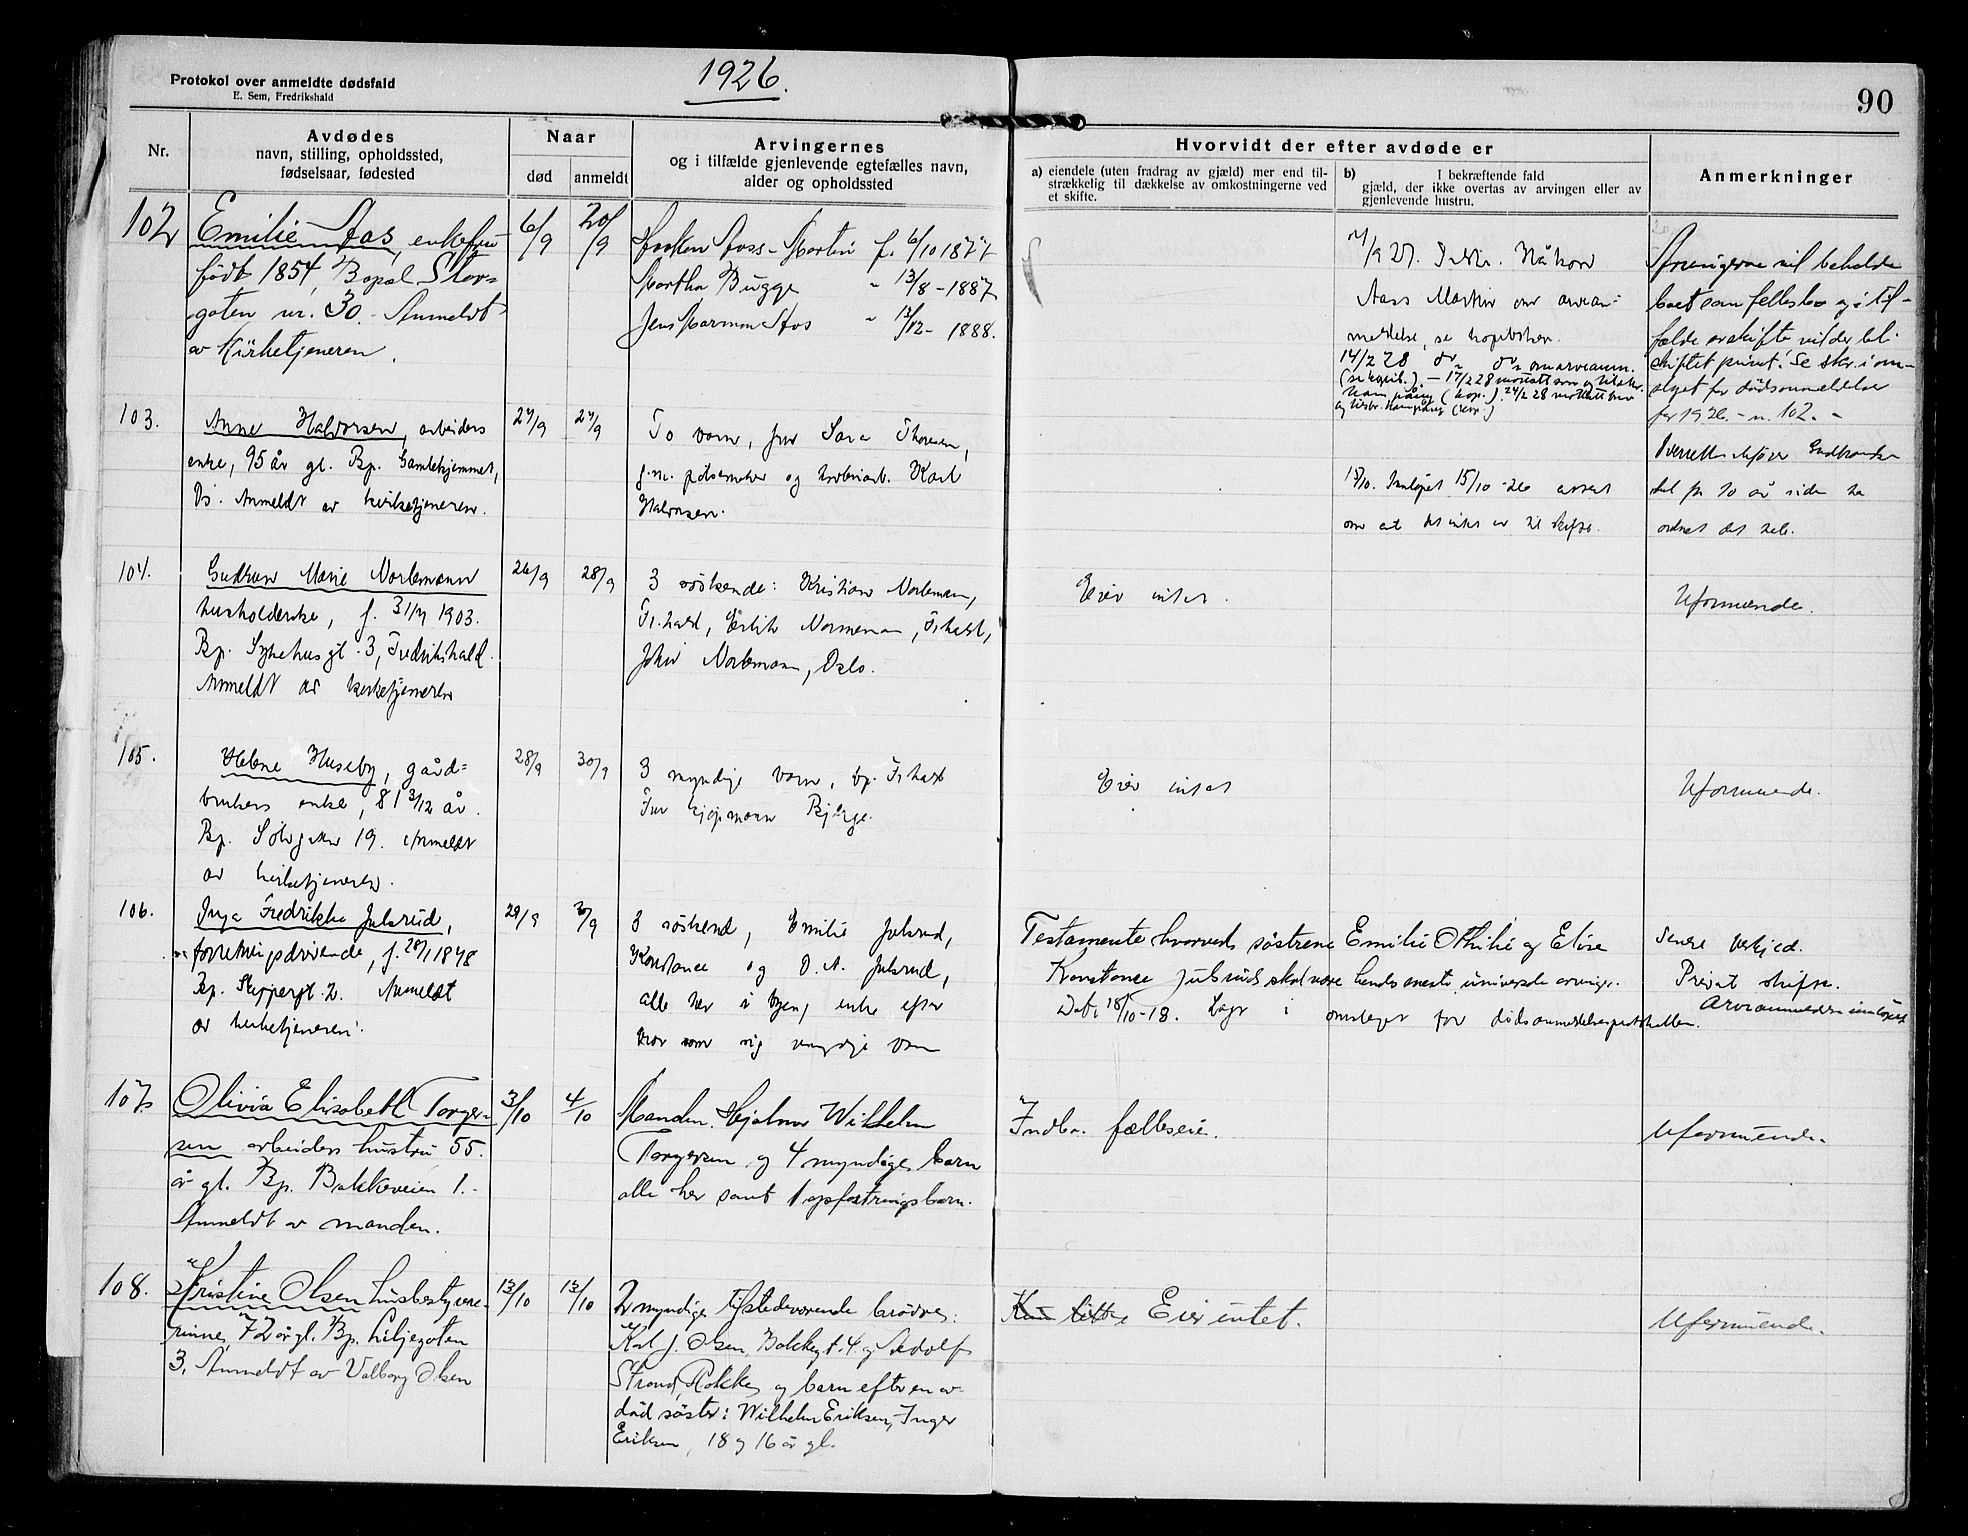 Protokol over anmeldte dødsfald
E. Sem, Fredrikshald
1926.
90
Nr.
Avdødes
navn, stilling, opholdssted,
fødselsaar, fødested
Naar
død
anmeldt
Arvingernes
og i tilfælde gjenlevende egtefælles navn,
alder og opholdssted
Hvorvidt der efter avdøde er
a) eiendele (uten fradrag av gjæld) mer end til-
strækkelig til dækkelse av omkostningerne ved
et skifte.
b) I bekræftende fald
gjæld, der ikke overtas av arvingen eller av
gjenlevende hustru.
Anmerkninger
102
Emilie Aas, enkefru
født 1854, Bopæl Stor-
gaten nr. 30. Anmeldt
av Kirketjeneren.
6/9
20/9
Haakon Aass-Martin f. 6/10 1877
Martha Bugge " 13/8-1887
Jens Harman Aas " 13/12-1888.
Håkon
Aass Martin om arvean-
meldelse, se kopiboken.
14/2 28
Arvingerne vil beholde
boet som fellesbo og i til-
fælde av skifte vil det bli
skiftet privat. Se skr. i om-
slaget for dødsanmeldelser
for 1926 - n. 102. -
103.
Anne Halvorsen, arbeiders
enke, 95 år gl. Bp. Gamlehjemmet,
Os. Anmeldt av kirketjeneren.
27/9
27/9
To barn, fru Sara Thoresen,
g.m. pølsemaker og tobakarb. Karl
Halvorsen.
18/10. Innløpet 15/10-26
om at det intet er til skifte.
Overrettssakfører
det for 10 år siden ha
ordnet det hele.
104.
Gudrun Marie Norlemann
husholderske, f. 31/7 1903.
Bp. Sykehusgt. 3, Fredrikshald.
Anmeldt av kirketjeneren
26/9
28/9
3 søskende: Kristian Norlemann,
Fr.hald, Erlik Normenan, Fr.hald,
John Norlemann, Oslo.
Eier intet.
Uformuende.
105.
Helene Huseby, gård-
brukers enke, 81 3/12 år.
Bp. Sølvgaten 19. Anmeldt
av kirketjeneren.
28/9
30/9
3 myndige barn, bp. Fr.hald
Fru kjøpmann Bjørge.
Eier intet
Uformuende.
106.
Inga Fredrikke Julsrud,
forretningsdrivende, f. 28/1 1848
Bp. Skippergt. 2. Anmeldt
av kirketjeneren.
29/9
30/9
3 søskend, Emilie Julsrud,
Konstance og O. A. Julsrud,
alle her i byen, enke efter
bror som sig myndige barn
Testamente hvorved søstrene Emilie Othilie og Elise
Konstance Julsrud skal være hendes eneste universelle arvinger.
Dat. 18/10-18. Lagt i omslaget for dødsanmeldelsesprotokollen.
Senere verkjed.
Privat skifte.
Arveanmeldelse innløpet
107.
Olivia Elisabeth Torger-
sen arbeiders hustru 55
år gl. Bp. Bakkeveien 1.-
Anmeldt av manden.
3/10
4/10
Manden Hjalmar Wilhelm
Torgersen og 4 myndige barn
alle her samt 1 opfostringsbarn.
Indbo. fælleseie.
Uformuende.
108.
Kristine Olsen husbestyrer-
inne, 72 år gl. Bp. Liljegaten
3. Anmeldt av Valborg Olsen
13/10
13/10
2 myndige tilstedeværende brødre:
Karl J. Olsen, Bakkegt. 4 og Adolf
Strand, Rokke, og barn efter en av-
død søster: Wilhelm Eriksen, Inger
Eriksen, 18 og 16 år gl.
Kun litt Eier intet.
Uformuende.